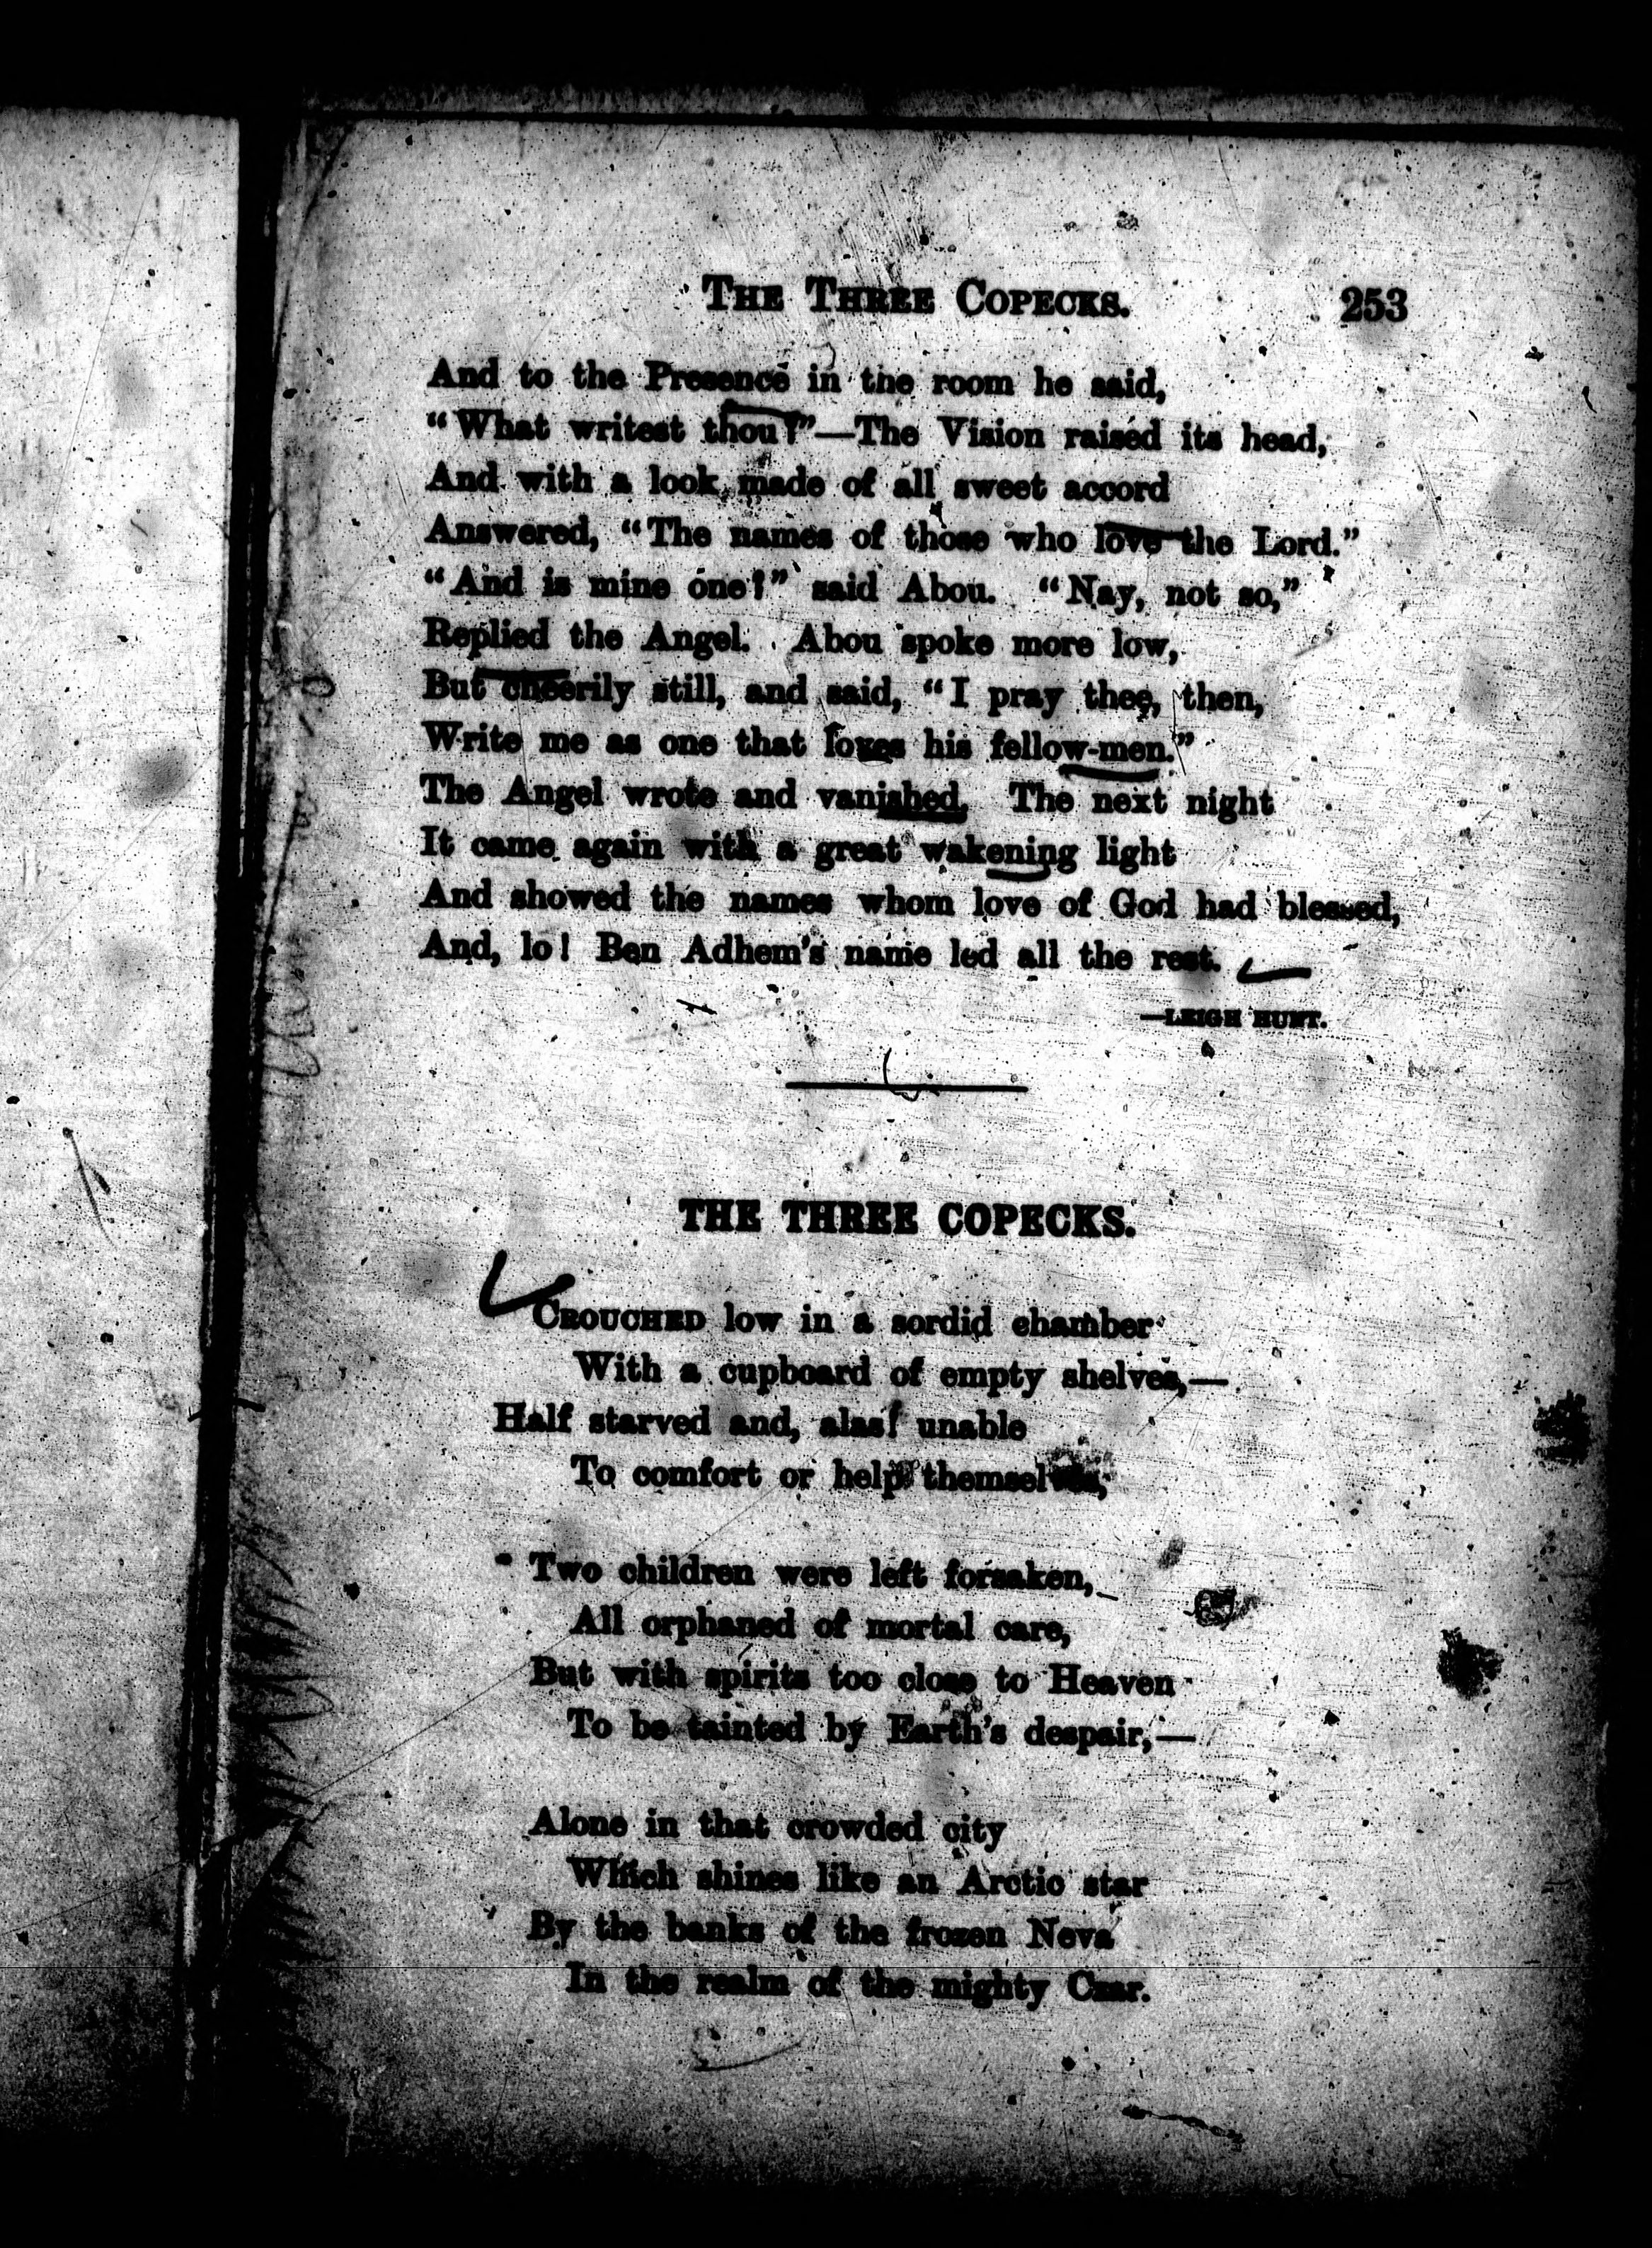 THE THREE COPECKS. 253
And to the Presence in the room he said,
"What writest thou?"—The Vision raised its head,
And with a look made of all sweet accord
Answered, "The names of those who love the Lord."
"And is mine one?" said Abou. "Nay, not so,"
Replied the Angel. Abou spoke more low,
But cheerily still, and said, "I pray thee, then,
Write me as one that loves his fellow-men."
The Angel wrote and vanished. The next night
It came again with a great wakening light
And showed the names whom love of God had blessed,
And, lo! Ben Adhem's name led all the rest.
—LEIGH HUNT.
THE THREE COPECKS.
CROUCHED low in a sordid chamber
With a cupboard of empty shelves,—
Half starved and, alas! unable
To comfort or help themselves,
Two children were left forsaken,
All orphaned of mortal care,
But with spirits too close to Heaven
To be tainted by Earth's despair,—
Alone in that crowded city
Which shines like an Arctic star
By the banks of the frozen Neva
In the realm of the mighty Czar.